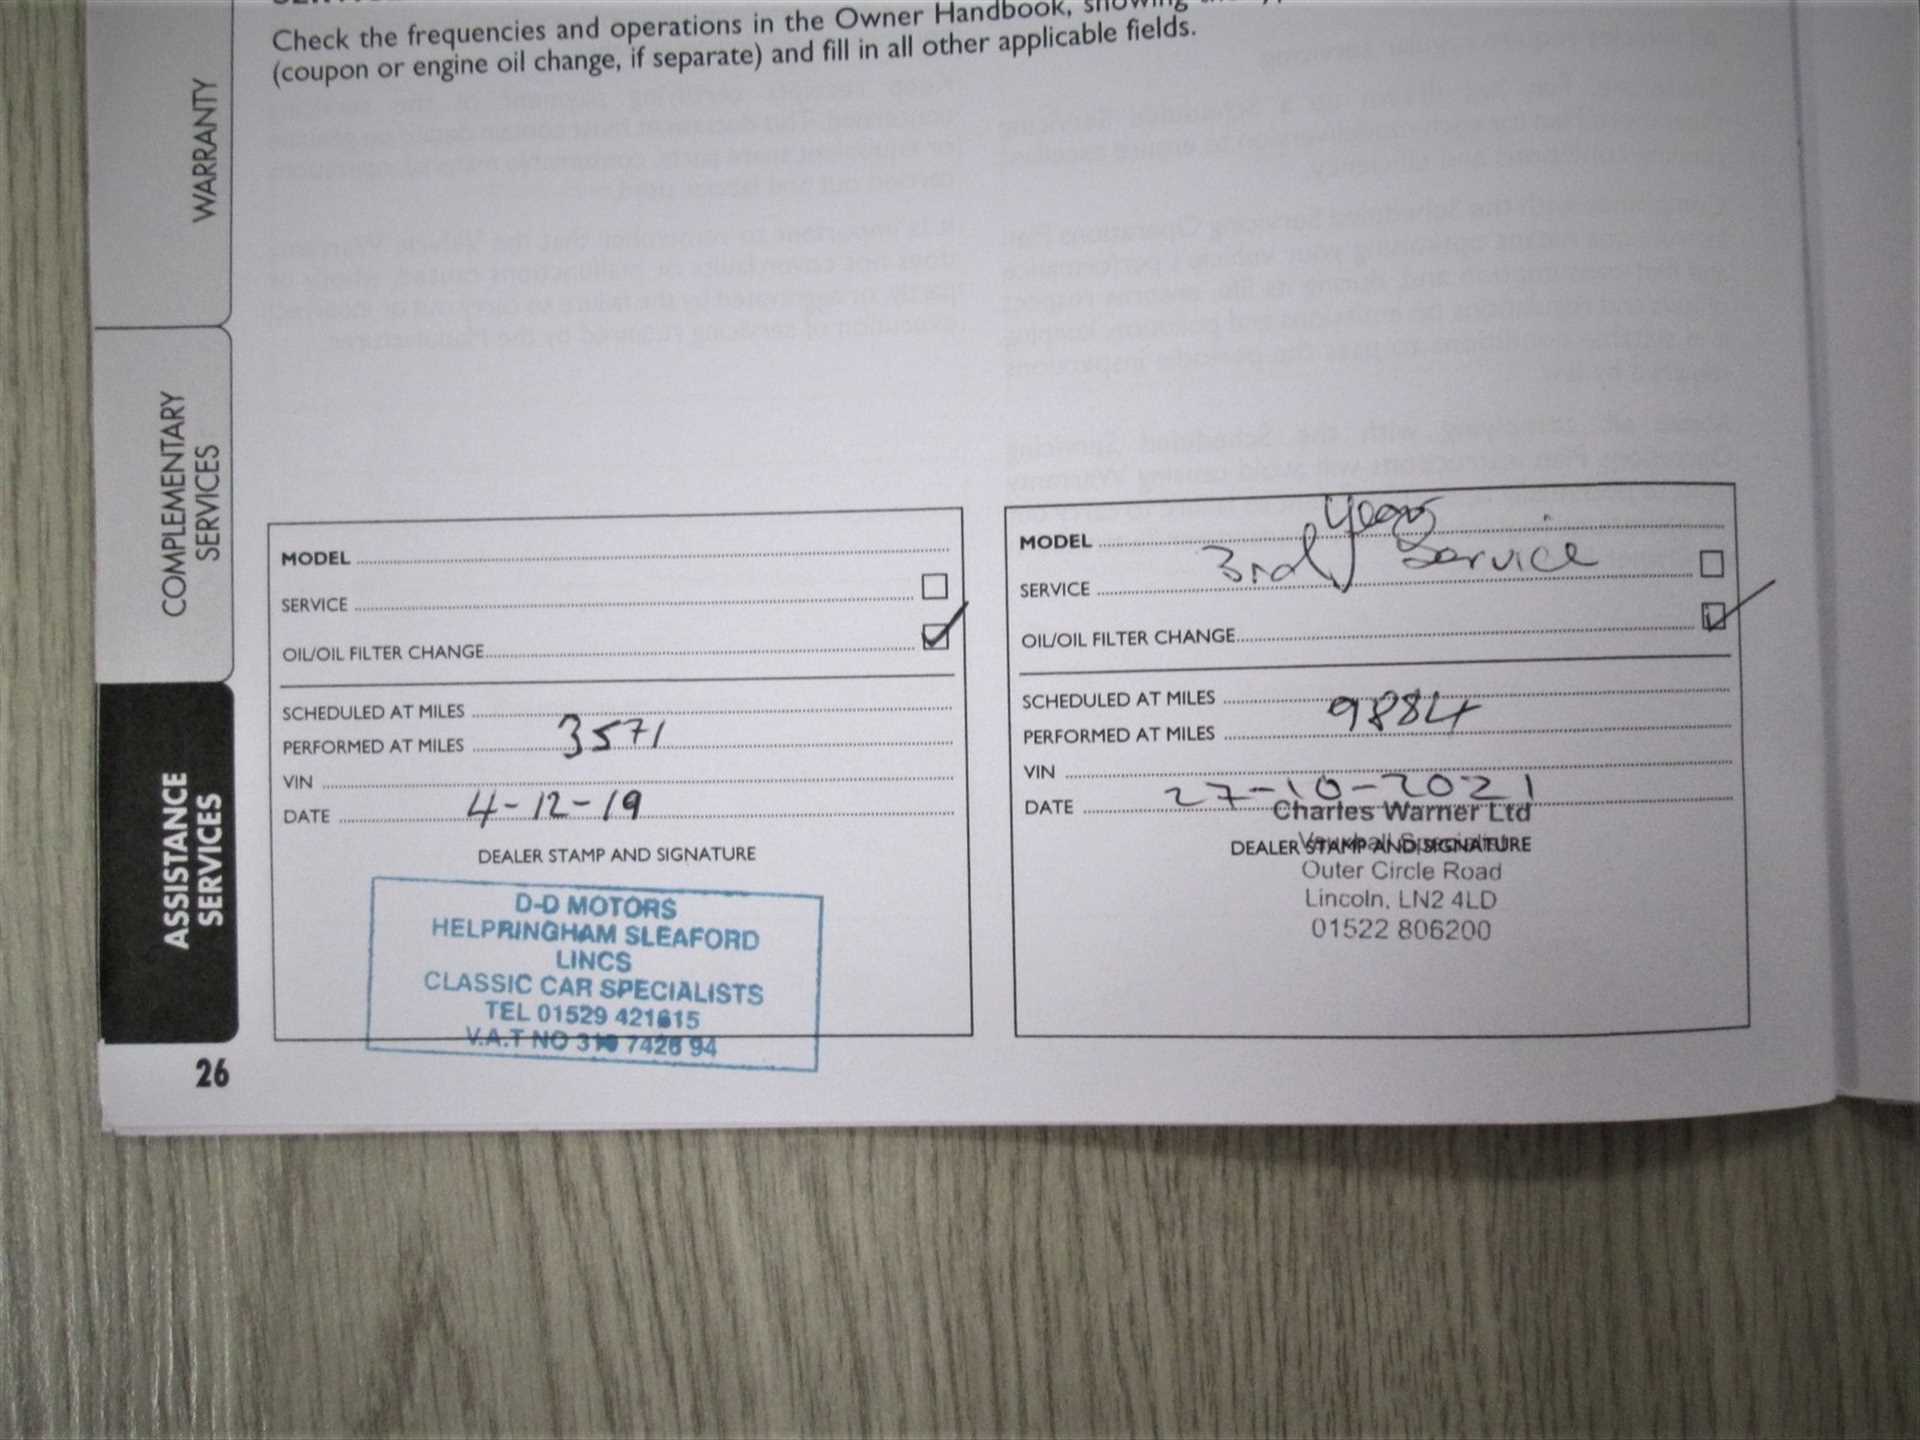 Check the frequencies and operations in the Owner Handbook, showing the
(coupon or engine oil change, if separate) and fill in all other applicable fields.
WARRANTY
COMPLEMENTARY
SERVICES
ASSISTANCE
SERVICES
26
MODEL
SERVICE
OIL/OIL FILTER CHANGE
SCHEDULED AT MILES
PERFORMED AT MILES 3571
VIN
DATE 4-12-19
DEALER STAMP AND SIGNATURE
D-D MOTORS
HELPRINGHAM SLEAFORD
LINCS
CLASSIC CAR SPECIALISTS
TEL 01529 421615
V.A.T NO 310 7426 94
MODEL
SERVICE 3rd Years Service
OIL/OIL FILTER CHANGE
SCHEDULED AT MILES
PERFORMED AT MILES 9884
VIN
DATE 27-10-2021
Charles Warner Ltd
DEALER STAMP AND SIGNATURE
Vauxhall Specialist
Outer Circle Road
Lincoln, LN2 4LD
01522 806200